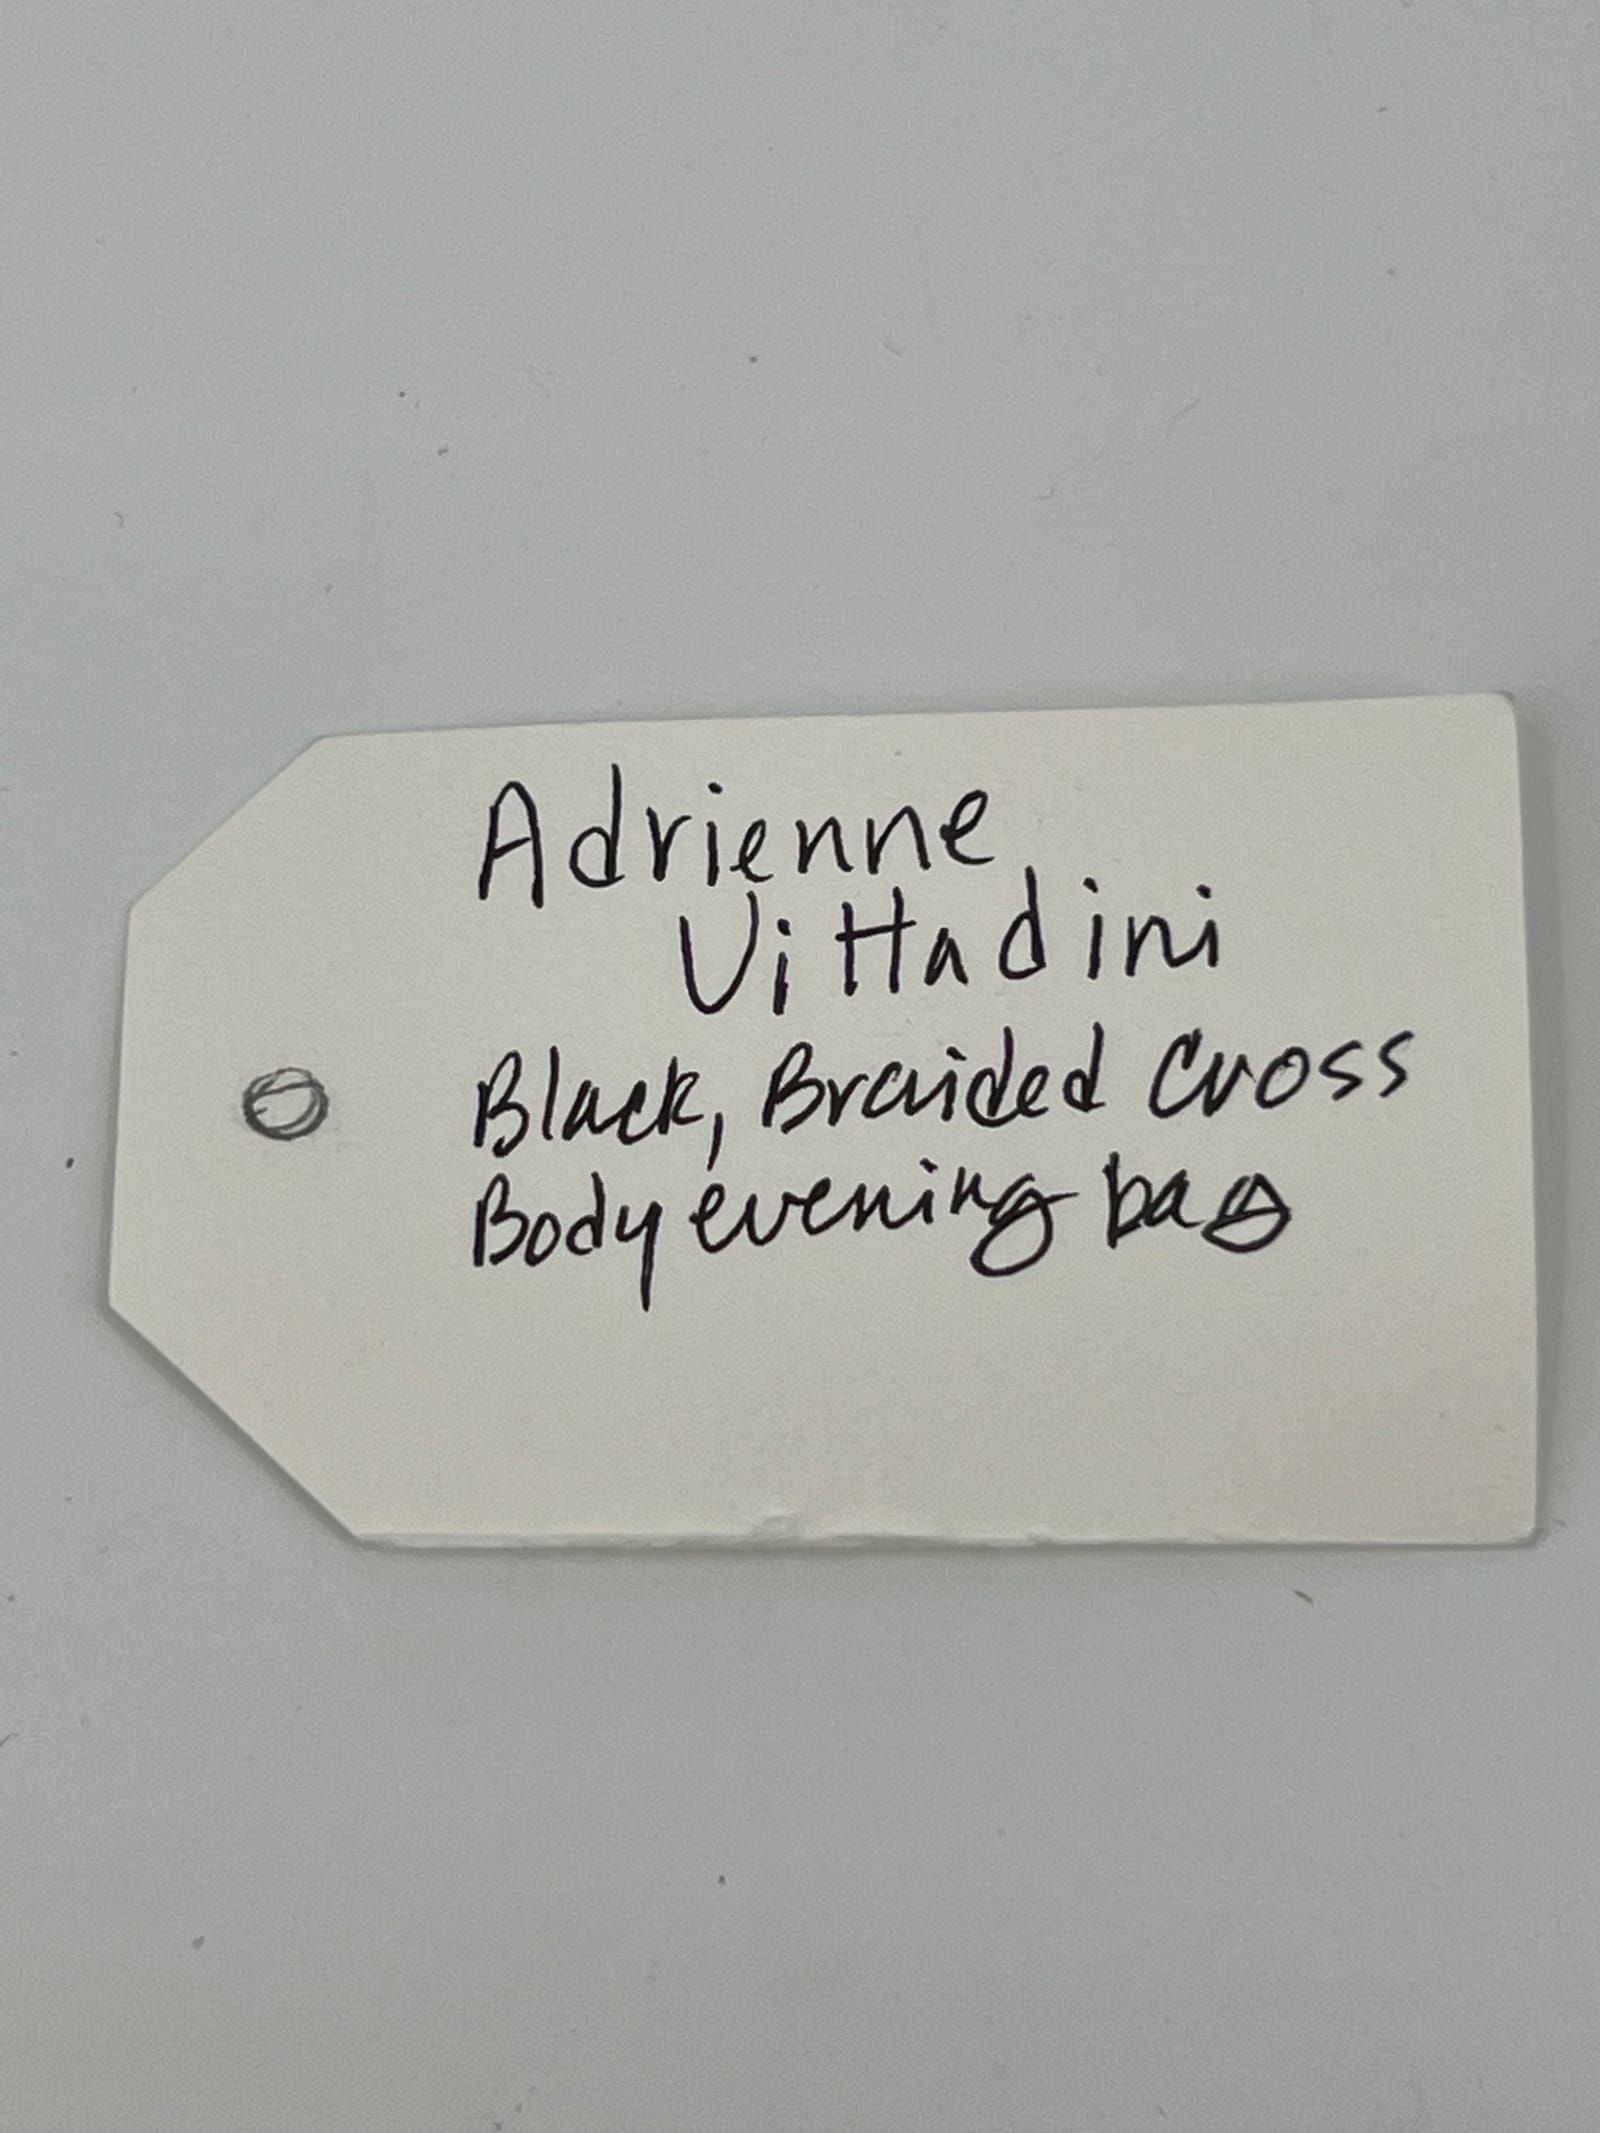 Adrienne
Vittadini
Black, Braided Cross
Body evening bag